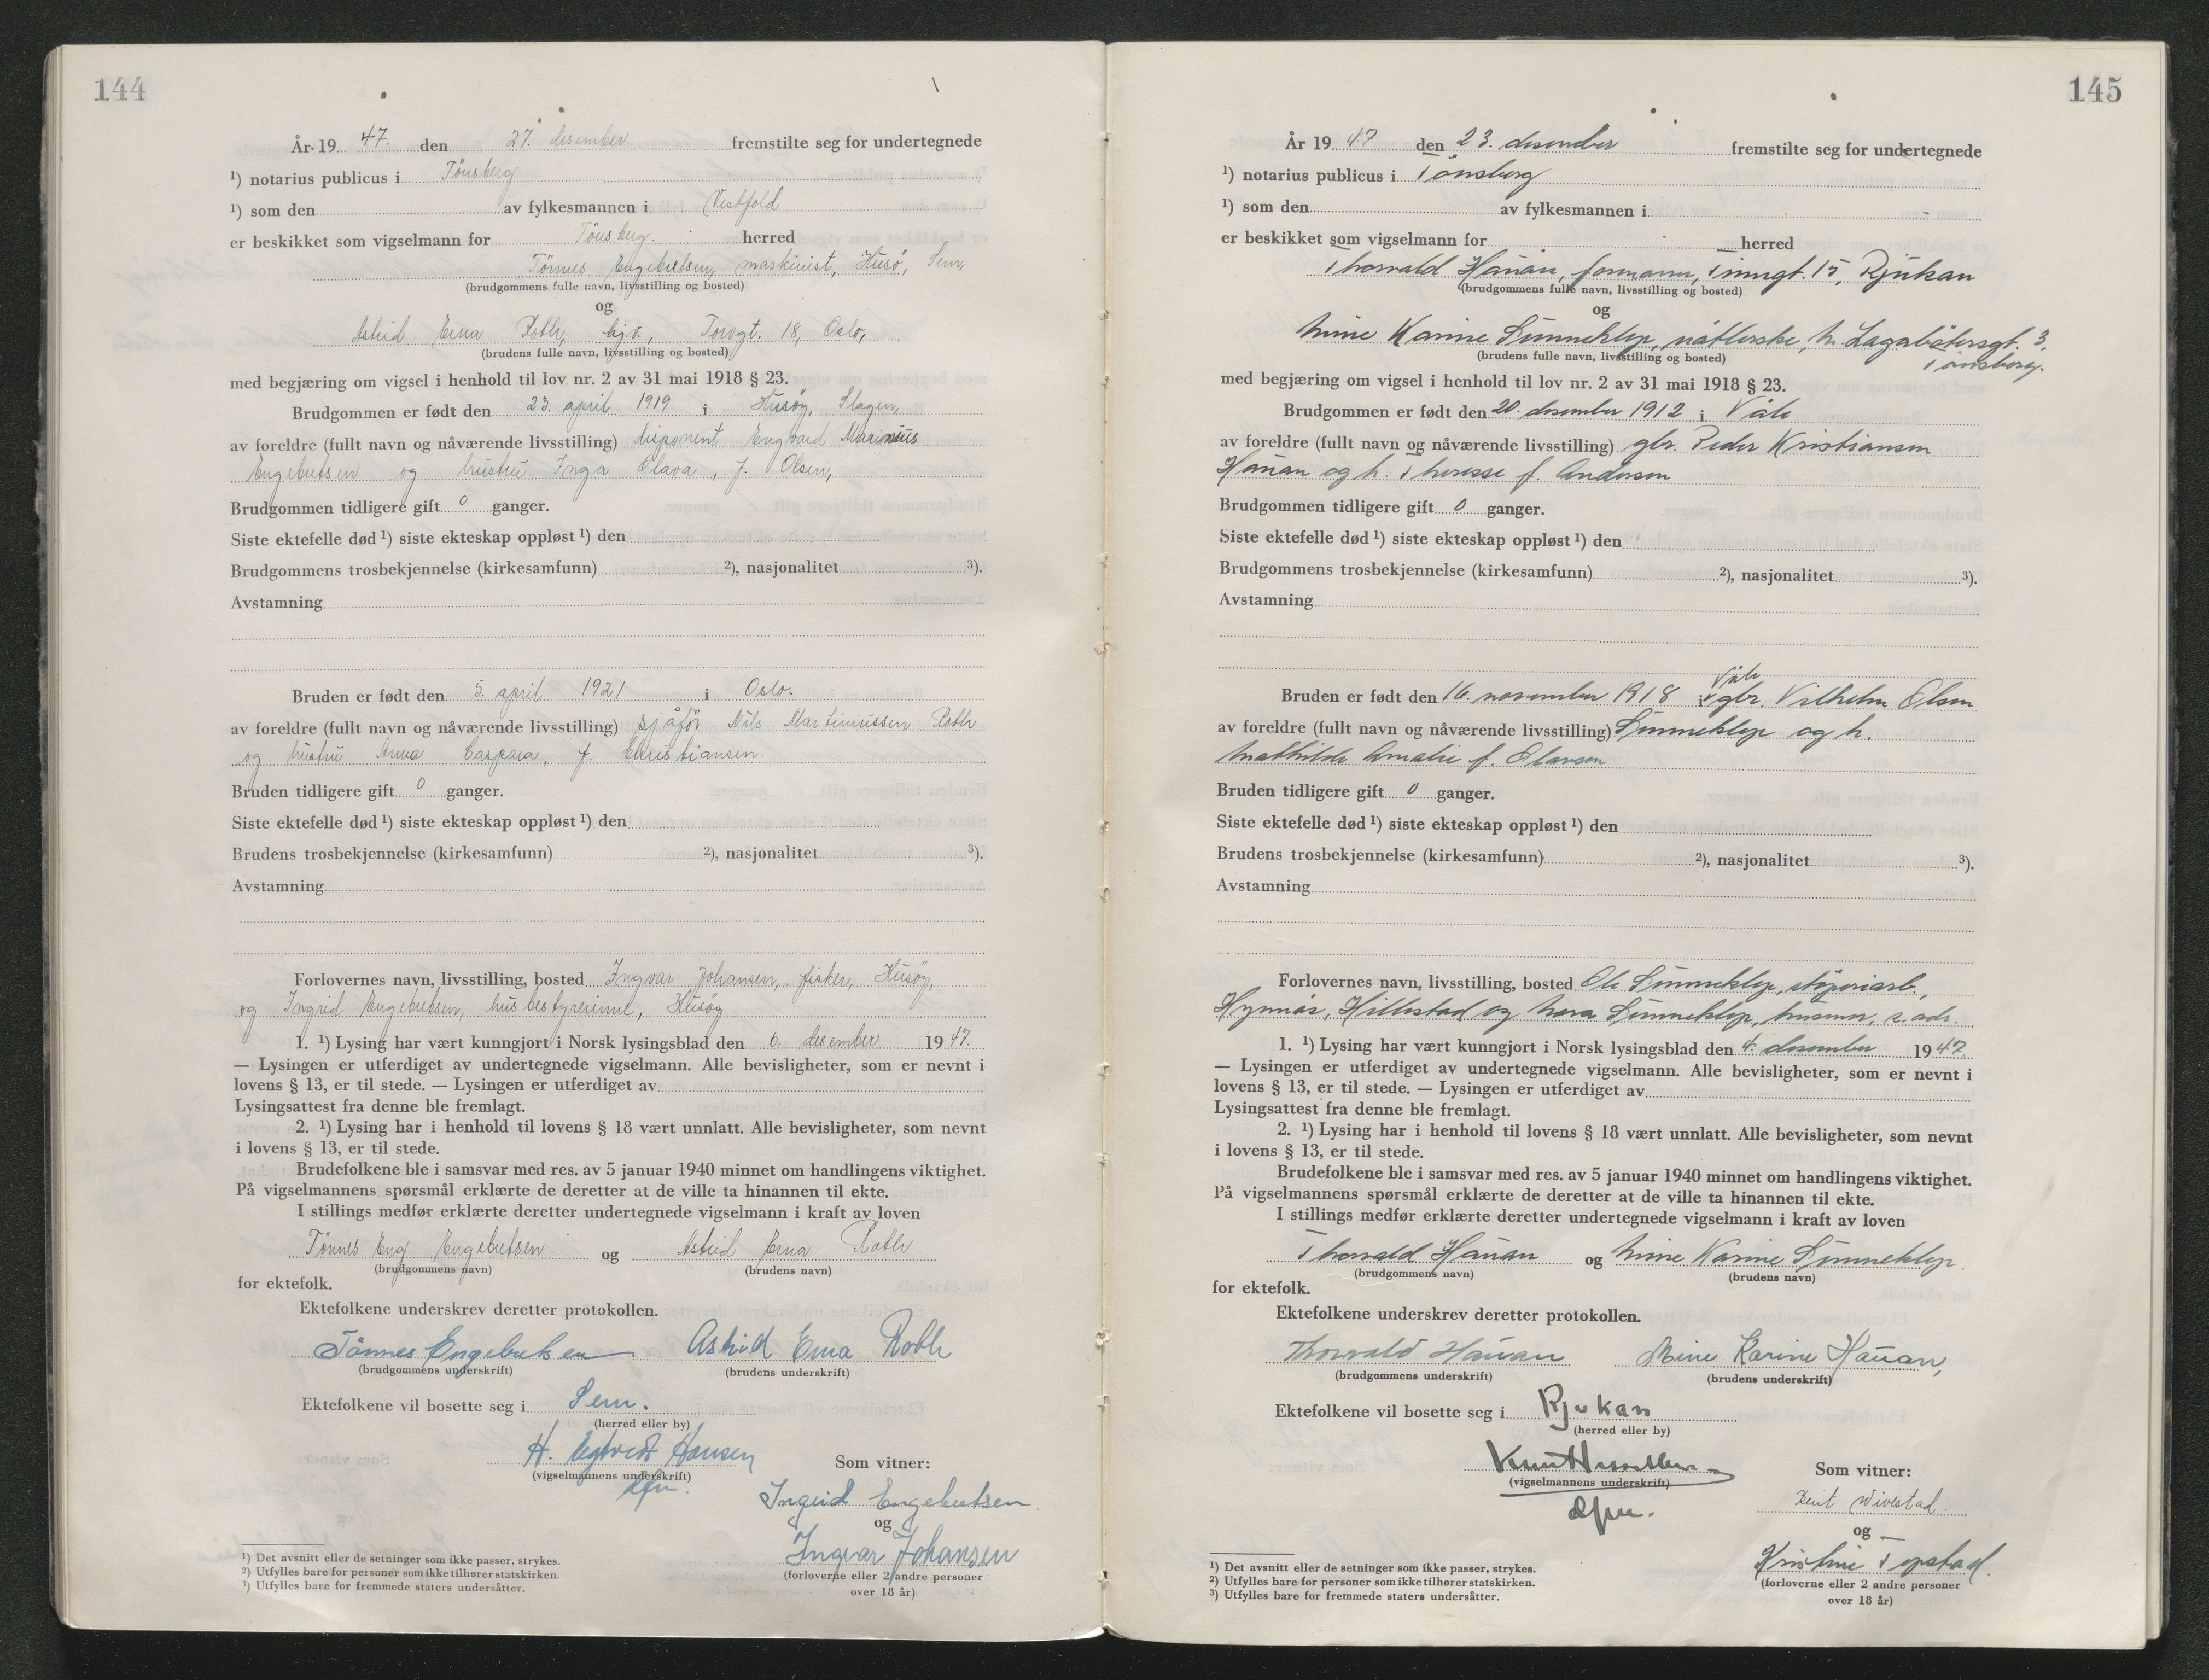 144
År 19 47. den 27. desember fremstilte seg for undertegnede
¹) notarius publicus i Tönsberg
¹) som den av fylkesmannen i Vestfold
er beskikket som vigselmann for Tönsberg. herred
Tönnes Engebretsen, maskinist, Husö, Sem,
(brudgommens fulle navn, livsstilling og bosted)
og
Astrid Erna Roth, hjv., Torvgt. 18, Oslo,
(brudens fulle navn, livsstilling og bosted)
med begjæring om vigsel i henhold til lov nr. 2 av 31 mai 1918 § 23.
Brudgommen er født den 23. april 1919 i Husöy, Slagen,
av foreldre (fullt navn og nåværende livsstilling) disponent Engvard Marinius
Engebretsen og hustru Inga Olava, f. Olsen,
Brudgommen tidligere gift 0 ganger.
Siste ektefelle død ¹) siste ekteskap oppløst ¹) den
Brudgommens trosbekjennelse (kirkesamfunn) ²), nasjonalitet ³).
Avstamning
Bruden er født den 5. april 1921 i Oslo.
av foreldre (fullt navn og nåværende livsstilling) sjåför Nils Martinussen Roth
og hustru Anna Caspara, f. Christiansen.
Bruden tidligere gift 0 ganger.
Siste ektefelle død ¹) siste ekteskap oppløst ¹) den
Brudens trosbekjennelse (kirkesamfunn) ²), nasjonalitet ³).
Avstamning
Forlovernes navn, livsstilling, bosted Ingvar Johansen, fisker, Husöy,
og Ingrid Engebretsen, husbestyrerinne, Husöy
1. ¹) Lysing har vært kunngjort i Norsk lysingsblad den 6. desember 19 47.
— Lysingen er utferdiget av undertegnede vigselmann. Alle bevisligheter, som er nevnt i
lovens § 13, er til stede. — Lysingen er utferdiget av
Lysingsattest fra denne ble fremlagt.
2. ¹) Lysing har i henhold til lovens § 18 vært unnlatt. Alle bevisligheter, som nevnt
i lovens § 13, er til stede.
Brudefolkene ble i samsvar med res. av 5 januar 1940 minnet om handlingens viktighet.
På vigselmannens spørsmål erklærte de deretter at de ville ta hinannen til ekte.
I stillings medfør erklærte deretter undertegnede vigselmann i kraft av loven
Tönnes Eng Engebretsen og Astrid Erna Roth
(brudgommens navn) (brudens navn)
for ektefolk.
Ektefolkene underskrev deretter protokollen.
Tönnes Engebretsen Astrid Erna Roth
(brudgommens underskrift) (brudens underskrift)
Ektefolkene vil bosette seg i Sem.
(herred eller by)
H. Hansen
(vigselmannens underskrift)
Som vitner:
Ingrid Engebretsen.
og
Ingvar Johansen
(forloverne eller 2 andre personer
over 18 år)
¹) Det avsnitt eller de setninger som ikke passer, strykes.
²) Utfylles bare for personer som ikke tilhører statskirken.
³) Utfylles bare for fremmede staters undersåtter.
145
År 19 47 den 23. desember fremstilte seg for undertegnede
¹) notarius publicus i Tönsberg
¹) som den av fylkesmannen i
er beskikket som vigselmann for herred
Thorvald Hauan, formann, Tinngt. 15, Rjukan
(brudgommens fulle navn, livsstilling og bosted)
og
Mine Karine Linneklep, nåtlerske, M. Lagabötersgt. 3.
Tönsberg.
(brudens fulle navn, livsstilling og bosted)
med begjæring om vigsel i henhold til lov nr. 2 av 31 mai 1918 § 23.
Brudgommen er født den 20. desember 1912 i Våle
av foreldre (fullt navn og nåværende livsstilling) gbr. Peder Kristiansen
Hauan og h. Theresse f. Andersen
Brudgommen tidligere gift 0 ganger.
Siste ektefelle død ¹) siste ekteskap oppløst ¹) den
Brudgommens trosbekjennelse (kirkesamfunn) ²), nasjonalitet ³).
Avstamning
Våle
Bruden er født den 16. november 1918 i gbr. Vilhelm Olsen
av foreldre (fullt navn og nåværende livsstilling) Linneklep og h.
Mathilde Amalie f. Olavsen
Bruden tidligere gift 0 ganger.
Siste ektefelle død ¹) siste ekteskap oppløst ¹) den
Brudens trosbekjennelse (kirkesamfunn) ²), nasjonalitet ³).
Avstamning
Forlovernes navn, livsstilling, bosted Ole Linneklep, støperiarb.,
Hynnås, Hillestad og Nora Linneklep, husmor, s. adr.
1. ¹) Lysing har vært kunngjort i Norsk lysingsblad den 4. desember 19 47.
— Lysingen er utferdiget av undertegnede vigselmann. Alle bevisligheter, som er nevnt i
lovens § 13, er til stede. — Lysingen er utferdiget av
Lysingsattest fra denne ble fremlagt.
2. ¹) Lysing har i henhold til lovens § 18 vært unnlatt. Alle bevisligheter, som nevnt
i lovens § 13, er til stede.
Brudefolkene ble i samsvar med res. av 5 januar 1940 minnet om handlingens viktighet.
På vigselmannens spørsmål erklærte de deretter at de ville ta hinannen til ekte.
I stillings medfør erklærte deretter undertegnede vigselmann i kraft av loven
Thorvald Hauan og Mine Karine Linneklep.
(brudgommens navn) (brudens navn)
for ektefolk.
Ektefolkene underskrev deretter protokollen.
Thorvald Hauan Mine Karine Hauan,
(brudgommens underskrift) (brudens underskrift)
Ektefolkene vil bosette seg i Rjukan
(herred eller by)
(vigselmannens underskrift)
Som vitner:
Berit Wivestad.
og
Kristine Topstad.
(forloverne eller 2 andre personer
over 18 år)
¹) Det avsnitt eller de setninger som ikke passer, strykes.
²) Utfylles bare for personer som ikke tilhører statskirken.
³) Utfylles bare for fremmede staters undersåtter.